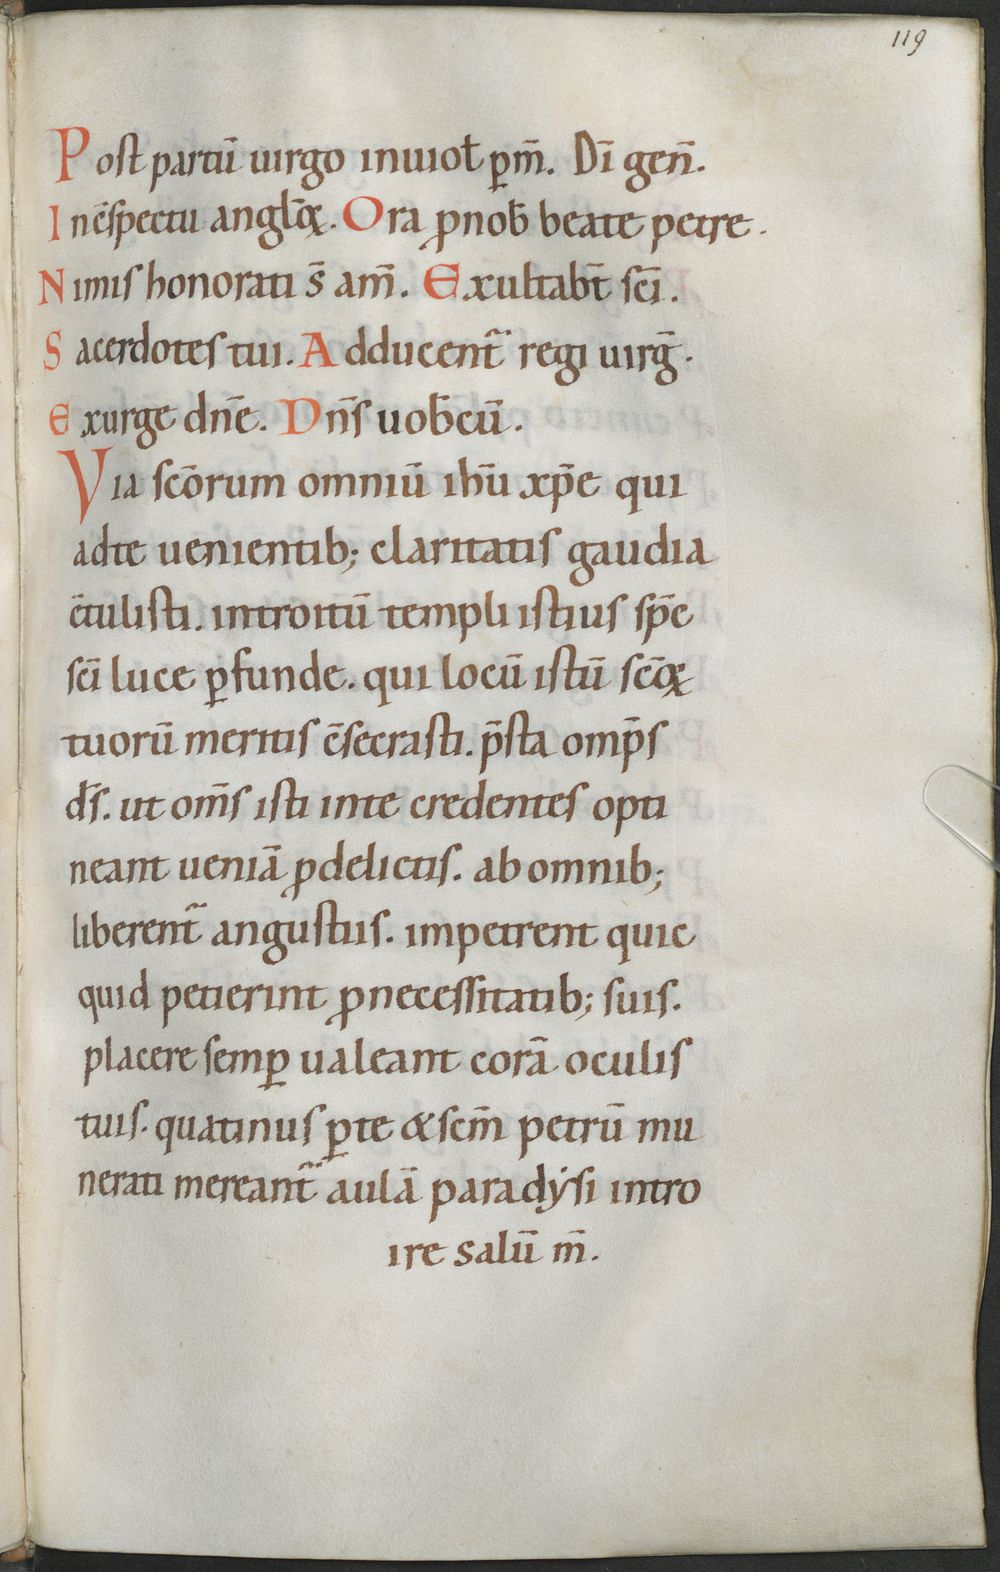 119
Post partū uirgo inuiot ꝑm̄. Dī gen̄.
In ↄ̄spectu anglo̅ꝝ. Ora ꝓnob̄ beate petre.
Nimis honorati s̄ am̄. Exultab̄t sc̄i.
Sacerdotes tui. Adducent᷑ regi uirḡ.
Exurge dn̄e. Dn̄s uob̄cū.
Via sc̄orum omniū ih̄u xp̄e qui
adte uenientib; claritatis gaudia
ↄ̄tulisti. introitū templi istius sp̄c
sc̄i luce ꝑfunde. qui locū istū sc̄oꝝ
tuorū meritis ↄ̄secrasti. p̄sta omp̄s
d̄s. ut om̄s isti inte credentes opti
neant ueniā ꝓdelictis. ab omnib;
liberent᷑ angustiis. impetrent quic
quid petierint ꝓnecessitatib; suis.
placere semꝑ ualeant corā oculis
tuis. quatinus ꝑte &scm̄ petrū mu
nerati mereant᷑ aulā paradẏsi intro
ire salū m̄.